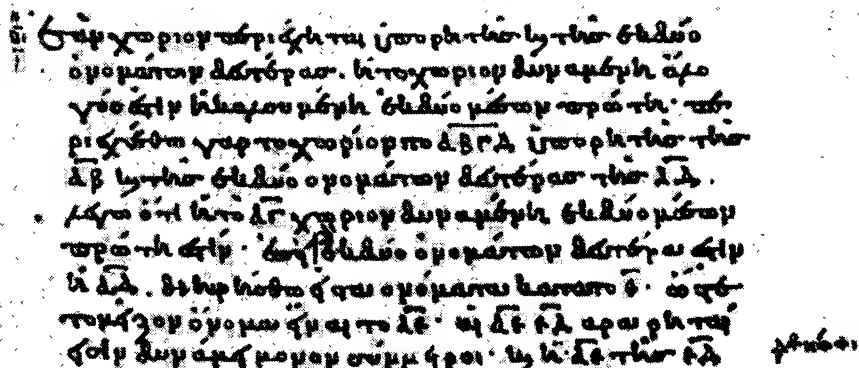 Ἐὰν χωρίον περιέχηται ὑπὸ ῥητῆς καὶ τῆς ἐκ δύο
ὀνομάτων δευτέρας. ἡ τὸ χωρίον δυναμένη ἄλο
γός ἐστιν ἡ καλουμένη ἐκ δύο μέσων πρώτη· πε
ριεχέσθω γὰρ τὸ χωρίον τὸ ΑΒΓΔ ὑπὸ ῥητῆς τῆς
ΑΒ καὶ τῆς ἐκ δύο ὀνομάτων δευτέρας τῆς ΑΔ.
λέγω ὅτι ἡ τὸ ΑΓ χωρίον δυναμένη ἐκ δύο μέσων
πρώτη ἐστίν· ἐπεὶ γὰρ ἐκ δύο ὀνομάτων δευτέρα ἐστὶν
ἡ ΑΔ. διῃρήσθω εἰς τὰ ὀνόματα κατὰ τὸ Ε· ὥστε
τὸ μεῖζον ὄνομα εἶναι τὸ ΑΕ· αἱ ΑΕ ΕΔ ἄρα ῥηταί
εἰσιν δυνάμει μόνον σύμμετροι· καὶ ἡ ΑΕ τῆς ΕΔ